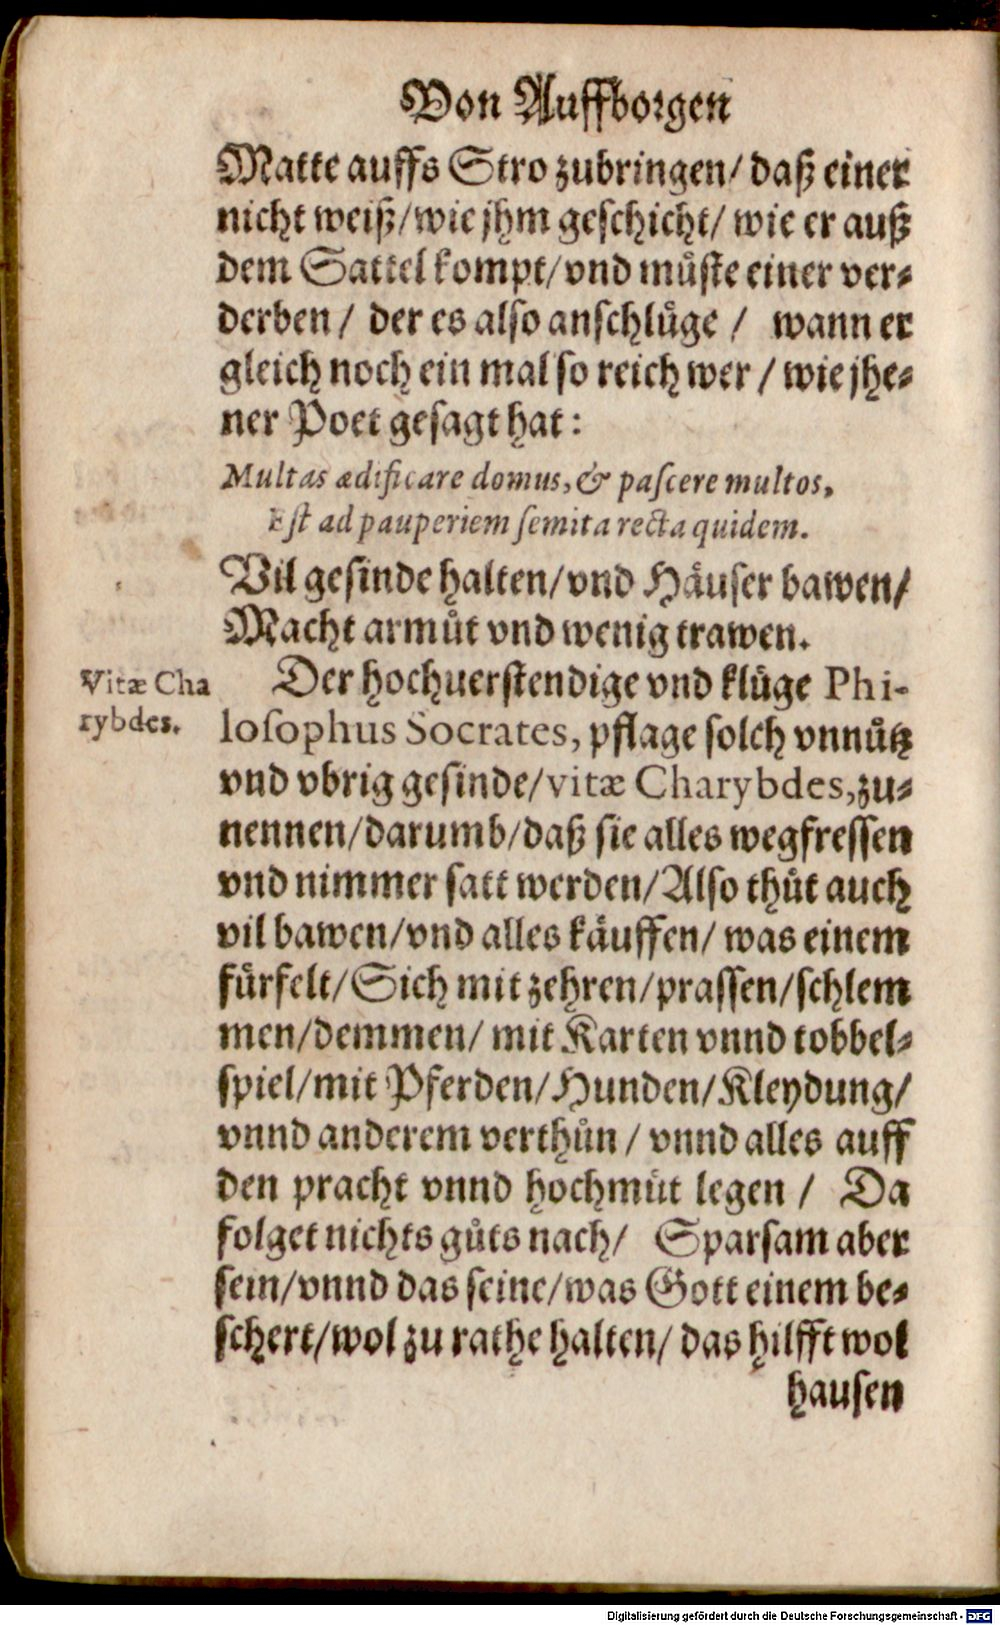 Von Auffborgen
Matte auffs Stro zubringen/ daß einer
nicht weiß/wie jhm geschicht/ wie er auß
dem Sattel kompt/vnd müste einer ver⸗
derben / der es also anschlüge / wann er
gleich noch ein mal so reich wer / wie jhe⸗
ner Poet gesagt hat:
Multas ædificare domus, & paſcere multos,
Eſt ad pauperiem ſemita recta quidem.
Vil gesinde halten/vnd Häuser bawen/
Macht armůt vnd wenig trawen.
Vitæ Cha
rybdes.
Der hochuerstendige vnd klůge Phi-
losophus Socrates, pflage solch vnnütz
vnd vbrig gesinde/vitæ Charybdes,zu⸗
nennen/darumb/daß sie alles wegfressen
vnd nimmer satt werden/Also thůt auch
vil bawen/vnd alles käuffen/ was einem
fürfelt/Sich mit zehren/prassen/schlem
men/demmen/ mit Karten vnnd tobbel⸗
spiel/mit Pferden/Hunden/Kleydung/
vnnd anderem verthůn / vnnd alles auff
den pracht vnnd hochmůt legen / Da
folget nichts gůts nach/ Sparsam aber
sein/vnnd das seine/was Gott einem be⸗
schert/wol zu rathe halten/ das hilfft wol
hausen
Digitalisierung gefördert durch die Deutsche Forschungsgemeinschaft - DFG